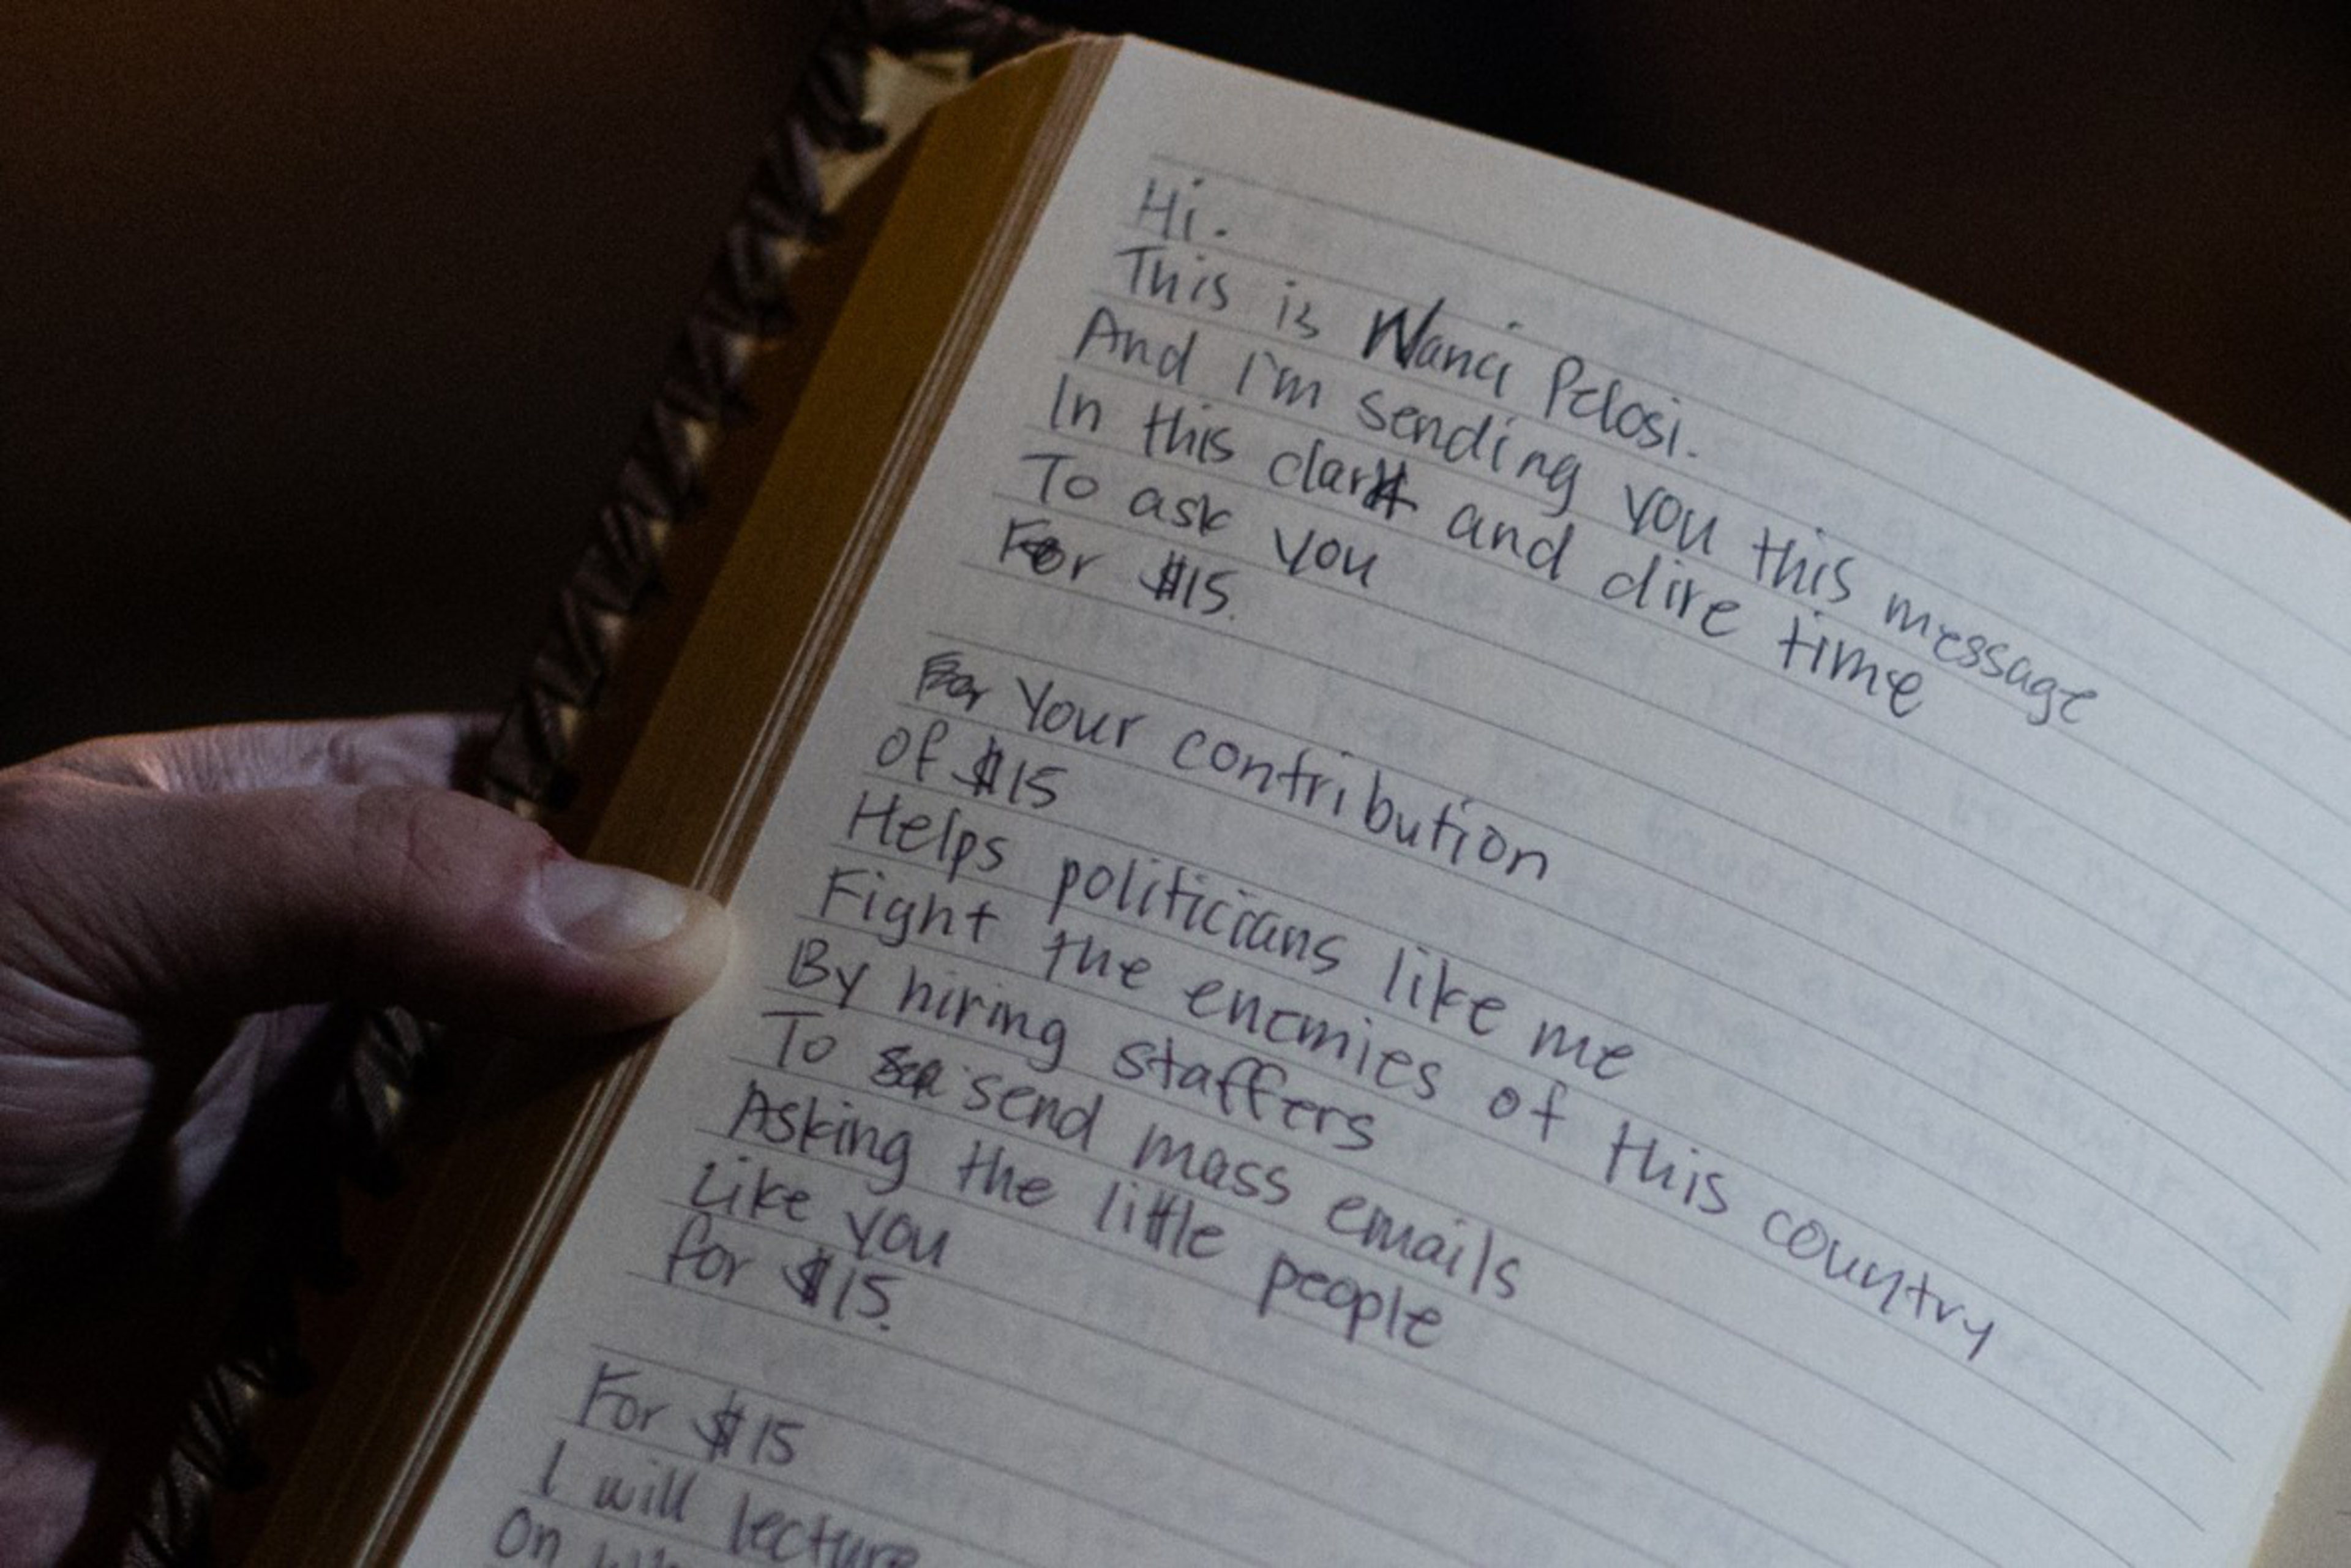 Hi.
This is Nanci Pelosi.
And I'm sending you this message
In this dark and dire time
To ask you
For $15.
For Your contribution
Of $15
Helps politicians like me
Fight the enemies of this country
By hiring staffers
To send mass emails
Asking the little people
Like you
for $15.
For $15
I will lecture
On